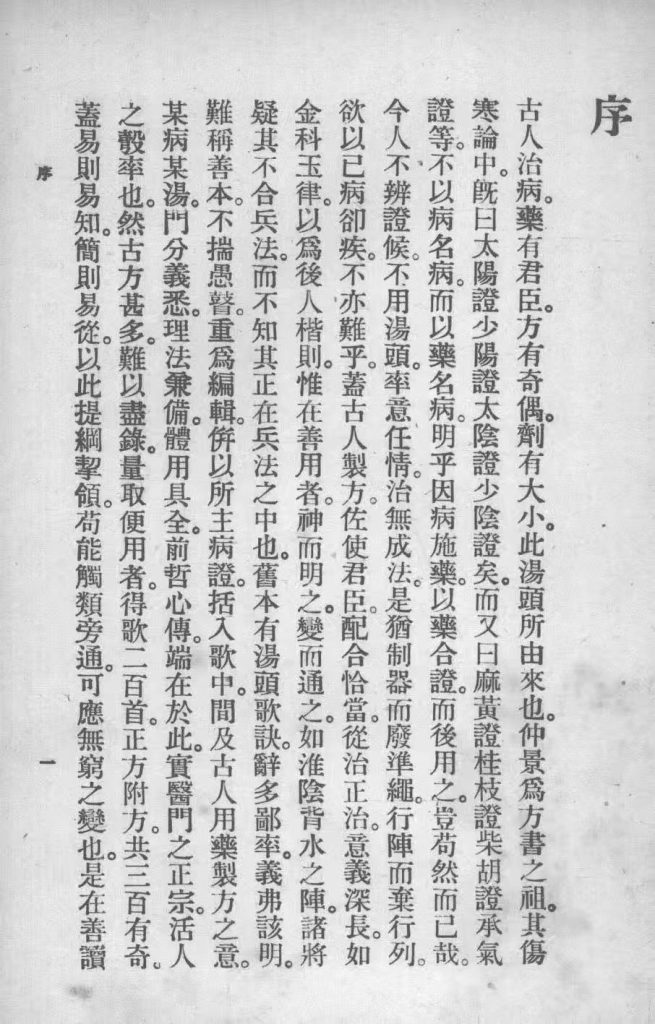 序
古人治病。藥有君臣。方有奇偶。劑有大小。此湯頭所由來也。仲景爲方書之祖。其傷
寒論中。旣曰太陽證少陽證太陰證少陰證矣。而又曰麻黃證桂枝證柴胡證承氣
證等。不以病名病。而以藥名病。明乎因病施藥。以藥合證。而後用之。豈苟然而已哉。
今人不辨證候。不用湯頭。率意任情。治無成法。是猶制器而廢準繩。行陣而棄行列。
欲以已病卻疾。不亦難乎。蓋古人製方。佐使君臣。配合恰當。從治正治。意義深長。如
金科玉律。以爲後人楷則。惟在善用者。神而明之。變而通之。如淮陰背水之陣。諸將
疑其不合兵法。而不知其正在兵法之中也。舊本有湯頭歌訣。辭多鄙率。義弗該明。
難稱善本。不揣愚瞽。重爲編輯。倂以所主病證。括入歌中。間及古人用藥製方之意。
某病某湯。門分義悉。理法兼備。體用具全。前哲心傳。端在於此。實醫門之正宗。活人
之彀率也。然古方甚多。難以盡錄。量取便用者。得歌二百首。正方附方。共三百有奇。
蓋易則易知。簡則易從。以此提綱挈領。苟能觸類旁通。可應無窮之變也。是在善讀
序
一